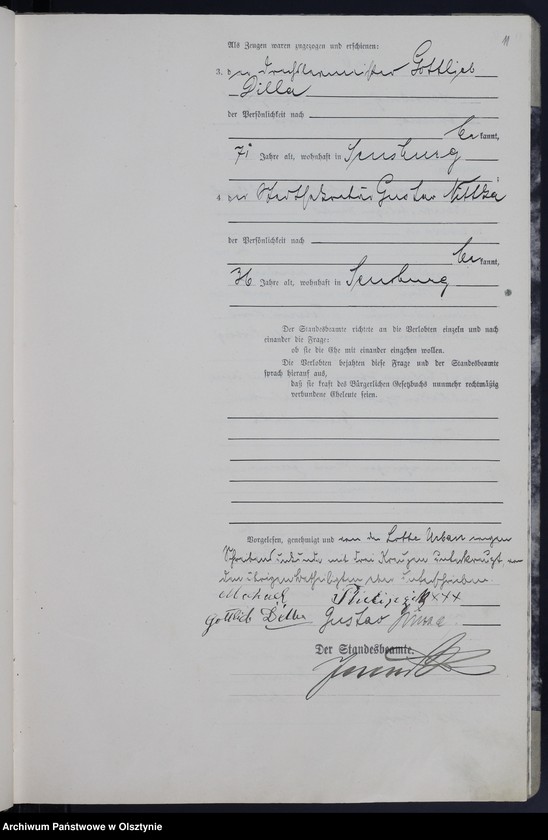 11
Als Zeugen waren zugezogen und erschienen:
3. der Drechslermeister Gottlieb
Dilla
der Persönlichkeit nach
be kannt,
71 Jahre alt, wohnhaft in Sensburg
4. der Stadtsekretär Gustav
der Persönlichkeit nach
be kannt,
36 Jahre alt, wohnhaft in Sensburg
Der Standesbeamte richtete an die Verlobten einzeln und nach
einander die Frage:
ob sie die Ehe mit einander eingehen wollen.
Die Verlobten bejahten diese Frage und der Standesbeamte
sprach hierauf aus,
daß sie kraft des Bürgerlichen Gesetzbuchs nunmehr rechtmäßig
verbundene Eheleute seien.
Vorgelesen, genehmigt und von der Lotte Urban wegen
mit drei Kreuzen unterkreuzt von
den übrigen Beteiligten unterschrieben
xxx
Gottlieb Dilla Gustav
Der Standesbeamte.
Archiwum Państwowe w Olsztynie